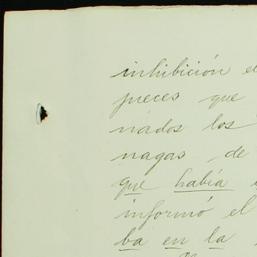 inhibición e
jueces que
nados los
nagas, de
que había
informó el
ba en la